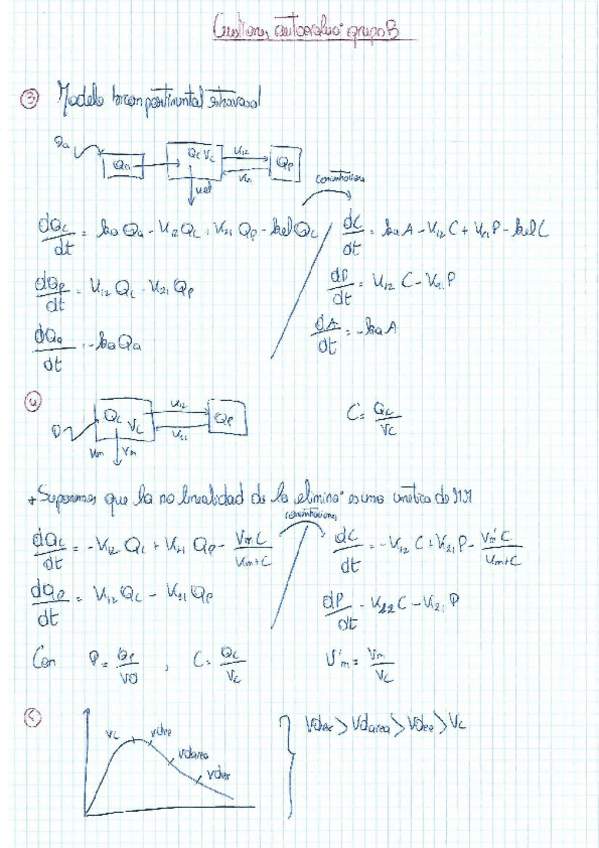 Cuestiones autoevaluaº grupo B
③ Modelo bicompartimental extravasal
Qa Qc Vc K12 K21 Qp
Kel
concentraciones
dQc/dt = ka Qa - K12 Qc + K21 Qp - kel Qc
dC/dt = ka A - K12 C + K21 P - kel C
dQp/dt = K12 Qc - K21 Qp
dP/dt = K12 C - K21 P
dQa/dt = -ka Qa
dA/dt = -ka A
④ D Qc Vc K12 K21 Qp
Vm
C = Qc/Vc
+ Suponemos que la no linealidad de la eliminaº es una cinética de MM
concentraciones
dQc/dt = -K12 Qc + K21 Qp - Vm C/Km+C
dC/dt = -K12 C + K21 P - V'm C/Km+C
dQp/dt = K12 Qc - K21 Qp
dP/dt = K12 C - K21 P
Con P = Qp/Vp , C = Qc/Vc V'm = Vm/Vc
Vc Vdee Vdarea Vdex
Vdex > Vdarea > Vdee > Vc